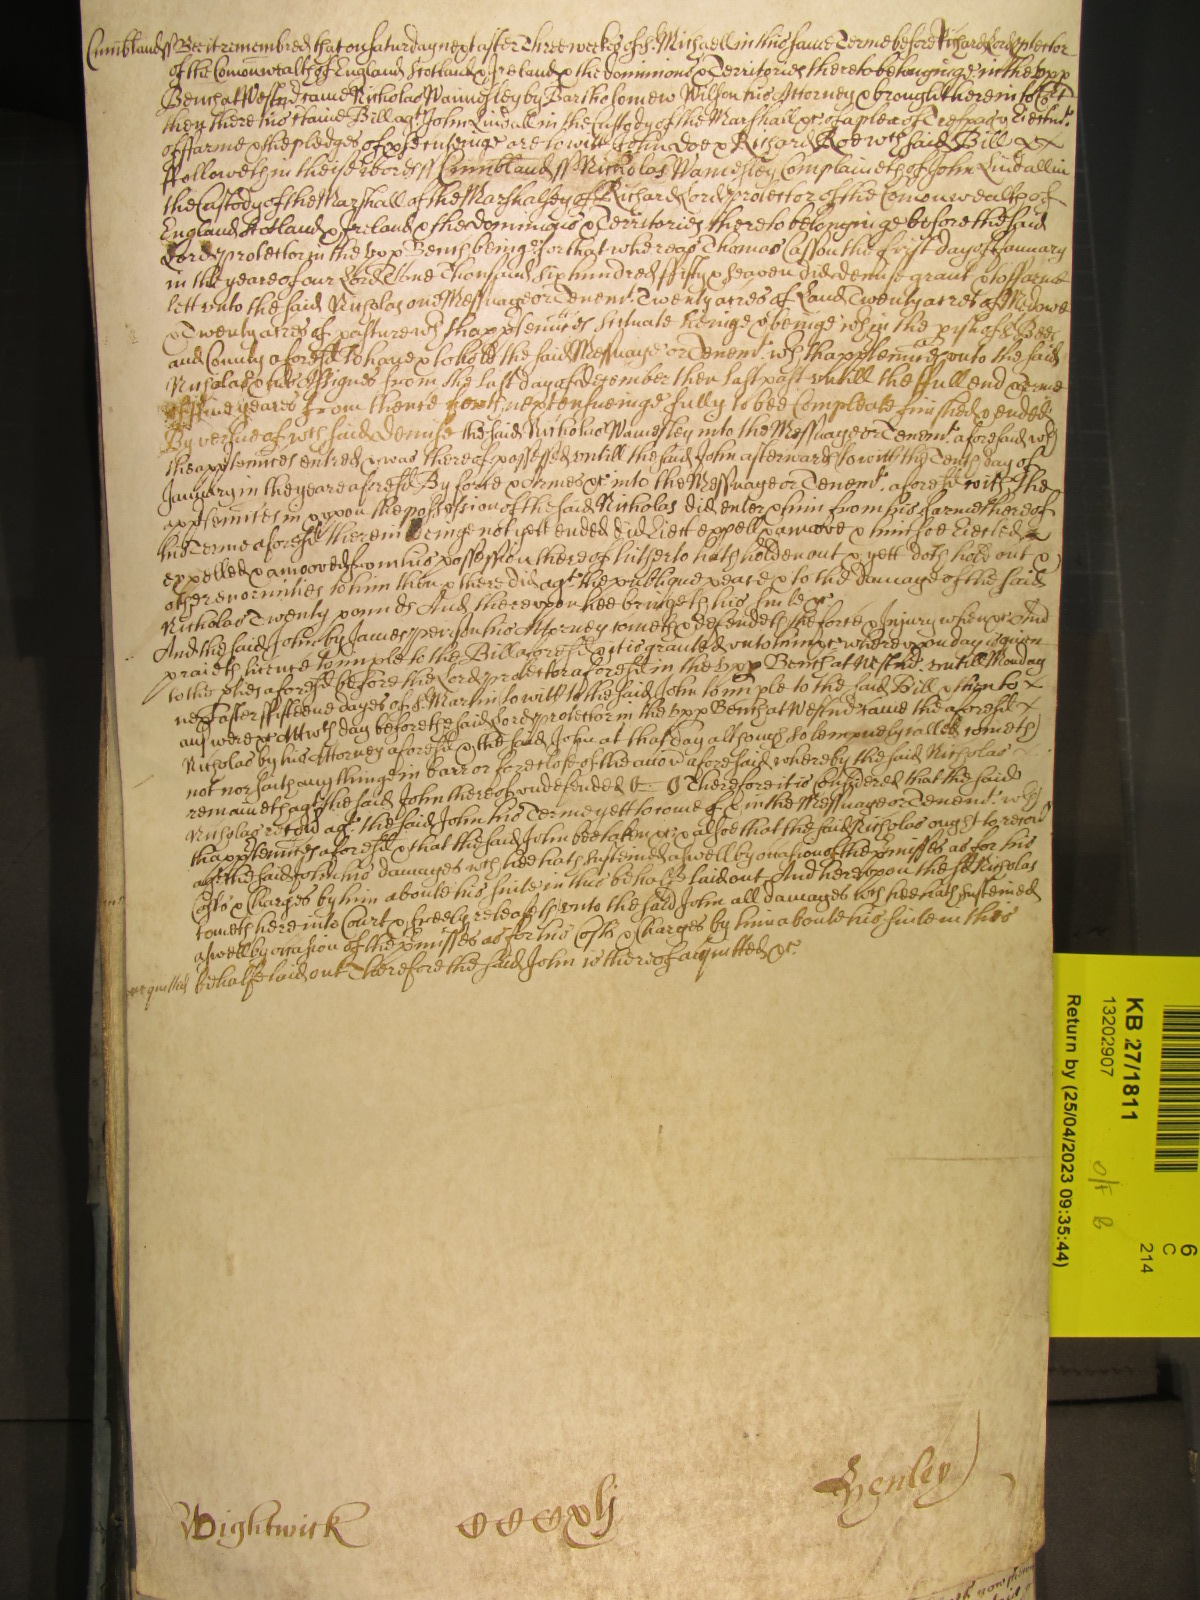 Cumbland ss Bee it remembred that on Saturday next after Three weekes of St. Michaell in this same Terme before Richard Lord ptector
of the Comonwealth of England Scotland & Ireland & the dominions & Territories thereto belonginge in the upp
Bench at Westmr came Nicholas Wamesley by Bartholomew Wilson his Attorney & brought here into Cort
then there his Bill agt John Lindall in the Custody of the Marshall &c of a plea of Trespas & Eiectmt
of ffarme & the pledges of psecuting are to witt John Doe & Richard Roe wch said Bill
ffolloweth in these words ss Cumbland ss Nicholas Wamesley Complaineth of John Lindall in
the Custody of the Marshall of the Marshalsey of Richard Lord protector of the Comonwealth of
England Scotland & Ireland & the dominions & Territories thereto belonginge before the said
Lord protector in the upp Bench beinge for that whereas Thomas Casson the first day of January
in the yeare of our Lord One Thousand six hundred ffifty & seaven did demise grant & to ffarme
lett unto the said Nicholas one Messuage or Tenemt Twenty acres of Land Twenty acres of Medowe
& Twenty acres of pasture wth thapptenances scituate lieinge & beinge in the pish of St Bees
and County aforesd To have & to hold the said Messuage or Tenemt wth thapptenances unto the said
Nicholas & his Assignes from the last day of december then last past untill the full end & terme
of ffive yeares from thence next ensueinge fully to bee Compleate finished & ended
By vertue of wch said demise the said Nicholas Wamesley into the Messuage or Tenemt aforesaid wth
thapptenances entred & was thereof possessed untill the said John afterwards to witt the Tenth day of
January in the yeare aforesd By force & armes &c into the Messuage or Tenemt aforesd with the
apptenances in & upon the possession of the said Nicholas did enter & him from his farme thereof
his Terme aforesd therein beinge not yett ended did Eiect expell & amove & him soe Eiected
expelled & amooved from his possession thereof hitherto hath holden out & yett doth hold out &
other enormities to him then & there did agt the publique peace & to the damage of the said
Nicholas Twenty pounds And thereupon hee bringeth his suite &c
And the said John by James his Attorney cometh & defendeth the force & Iniury when &c And
praieth licence to imple to the Bill aforesd & it is granted unto him &c whereupon day is given
to the pties aforesd before the Lord protector aforesd in the upp Bench at Westmr untill Monday
next after ffifteene dayes of St Martin to witt to the said John to imple to the said Bill & then to
answere &c Att wch day before the said Lord protector in the upp Bench at Westmr came the aforesd
Nicholas by his Attorney aforesd & the said John at that day although solempnely called cometh
not nor saith any thinge in barr or foreclose of the accon aforesaid whereby the said Nicholas
remaineth agt the said John thereof undefended &c Therefore it is Considered that the said
Nicholas recover agt the said John his Terme yett to come of & in the Messuage or Tenemt wth
thapptenances aforesd & that the said John bee taken &c & alsoe that the said Nicholas ought to recover
agt the said John his damages wch hee hath susteined aswell by occasion of the pmisses as for his
Costs & Charges by him about his suite in this behalfe laid out And hereupon the sd Nicholas
cometh here into Court & freely releaseth unto the said John all damages wch hee hath susteined
aswell by occasion of the pmisses as for his Costs & Charges by him about his suite in this
acquitted behalfe laid out Therefore the said John is thereof acquitted &c
Wightwick
Henley
KB 27/1811
13202907
Return by (25/04/2023 09:35:44)
6
C
214